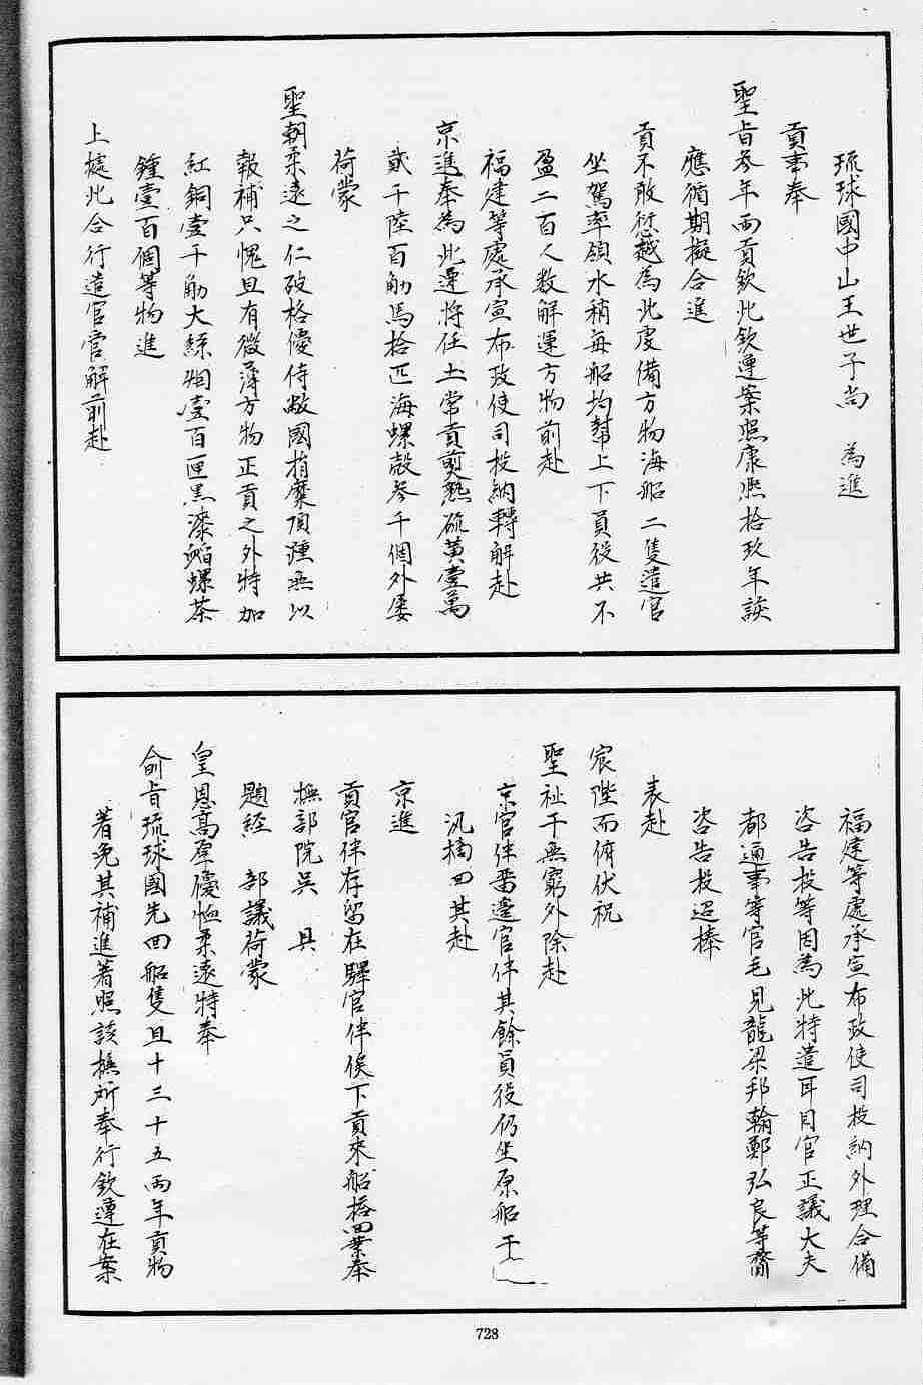 琉球國中山王世子尚　為進
貢事奉
聖旨參年兩貢欽此欽遵案照康熙拾玖年該
應循期擬合進
貢不敢愆越為此虔備方物海船二隻遣官
坐駕率領水稍每船均幫上下員役共不
盈二百人數解運方物前赴
福建等處承宣布政使司投納轉解赴
京進奉為此遵將任土常貢煎熟硫黃壹萬
貳千陸百觔馬拾匹海螺殼參千個外屢
荷蒙
聖朝柔遠之仁破格優待敝國捐糜頂踵無以
報補只愧且有微薄方物正貢之外特加
紅銅壹千觔大絲烟壹百匣黑漆嵌螺茶
鍾壹百個等物進
上據此合行遣官官解前赴
福建等處承宣布政使司投納外理合備
咨告投等因為此特遣耳目官正議大夫
都通事等官毛見龍梁邦翰鄭弘良等齎
咨告投迢棒
表赴
宸陛而俯伏祝
聖祉于無窮外除赴
京官伴番邊官伴其餘員役仍坐原船于
汛摘回其赴
京進
貢官伴存留在驛官伴俟下貢來船搭回業奉
撫部院吳　具
題經　部議荷蒙
皇恩高厚優恤柔遠特奉
俞旨琉球國先回船隻且十三十五兩年貢物
著免其補進著照該撫所奉行欽遵在案
728